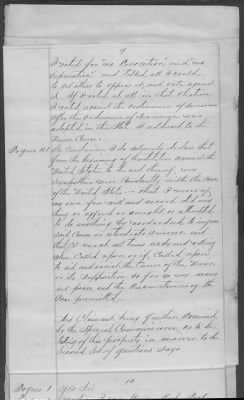 9
I voted for "no Convention" and "no
Separation" and talked all I could
to
it. If I voted at all in that election
I voted against the ordinance of secession
After the ordinance of Secession was
adopted in this State I adhered to the
Union Cause.
In Conclusion I do solemnly declare that
from the beginning of hostilities against the
United States to the end thereof, my
Sympathies were Constantly with the Cause
of the United States — that I never of
my own free will and accord did any
thing or offered or sought or attempted
to do anything by
said Cause or retard its success and
that I was at all times ready and willing
when Called upon or if Called upon
to aid and assist the Cause of the Union
or its Supporters so far as my means
and power and the Circumstances of the
Case permitted
And Claimant being further examined
by the Special Commissioner as to the
taking of his property in answer to the
Second Set of questions Says
10